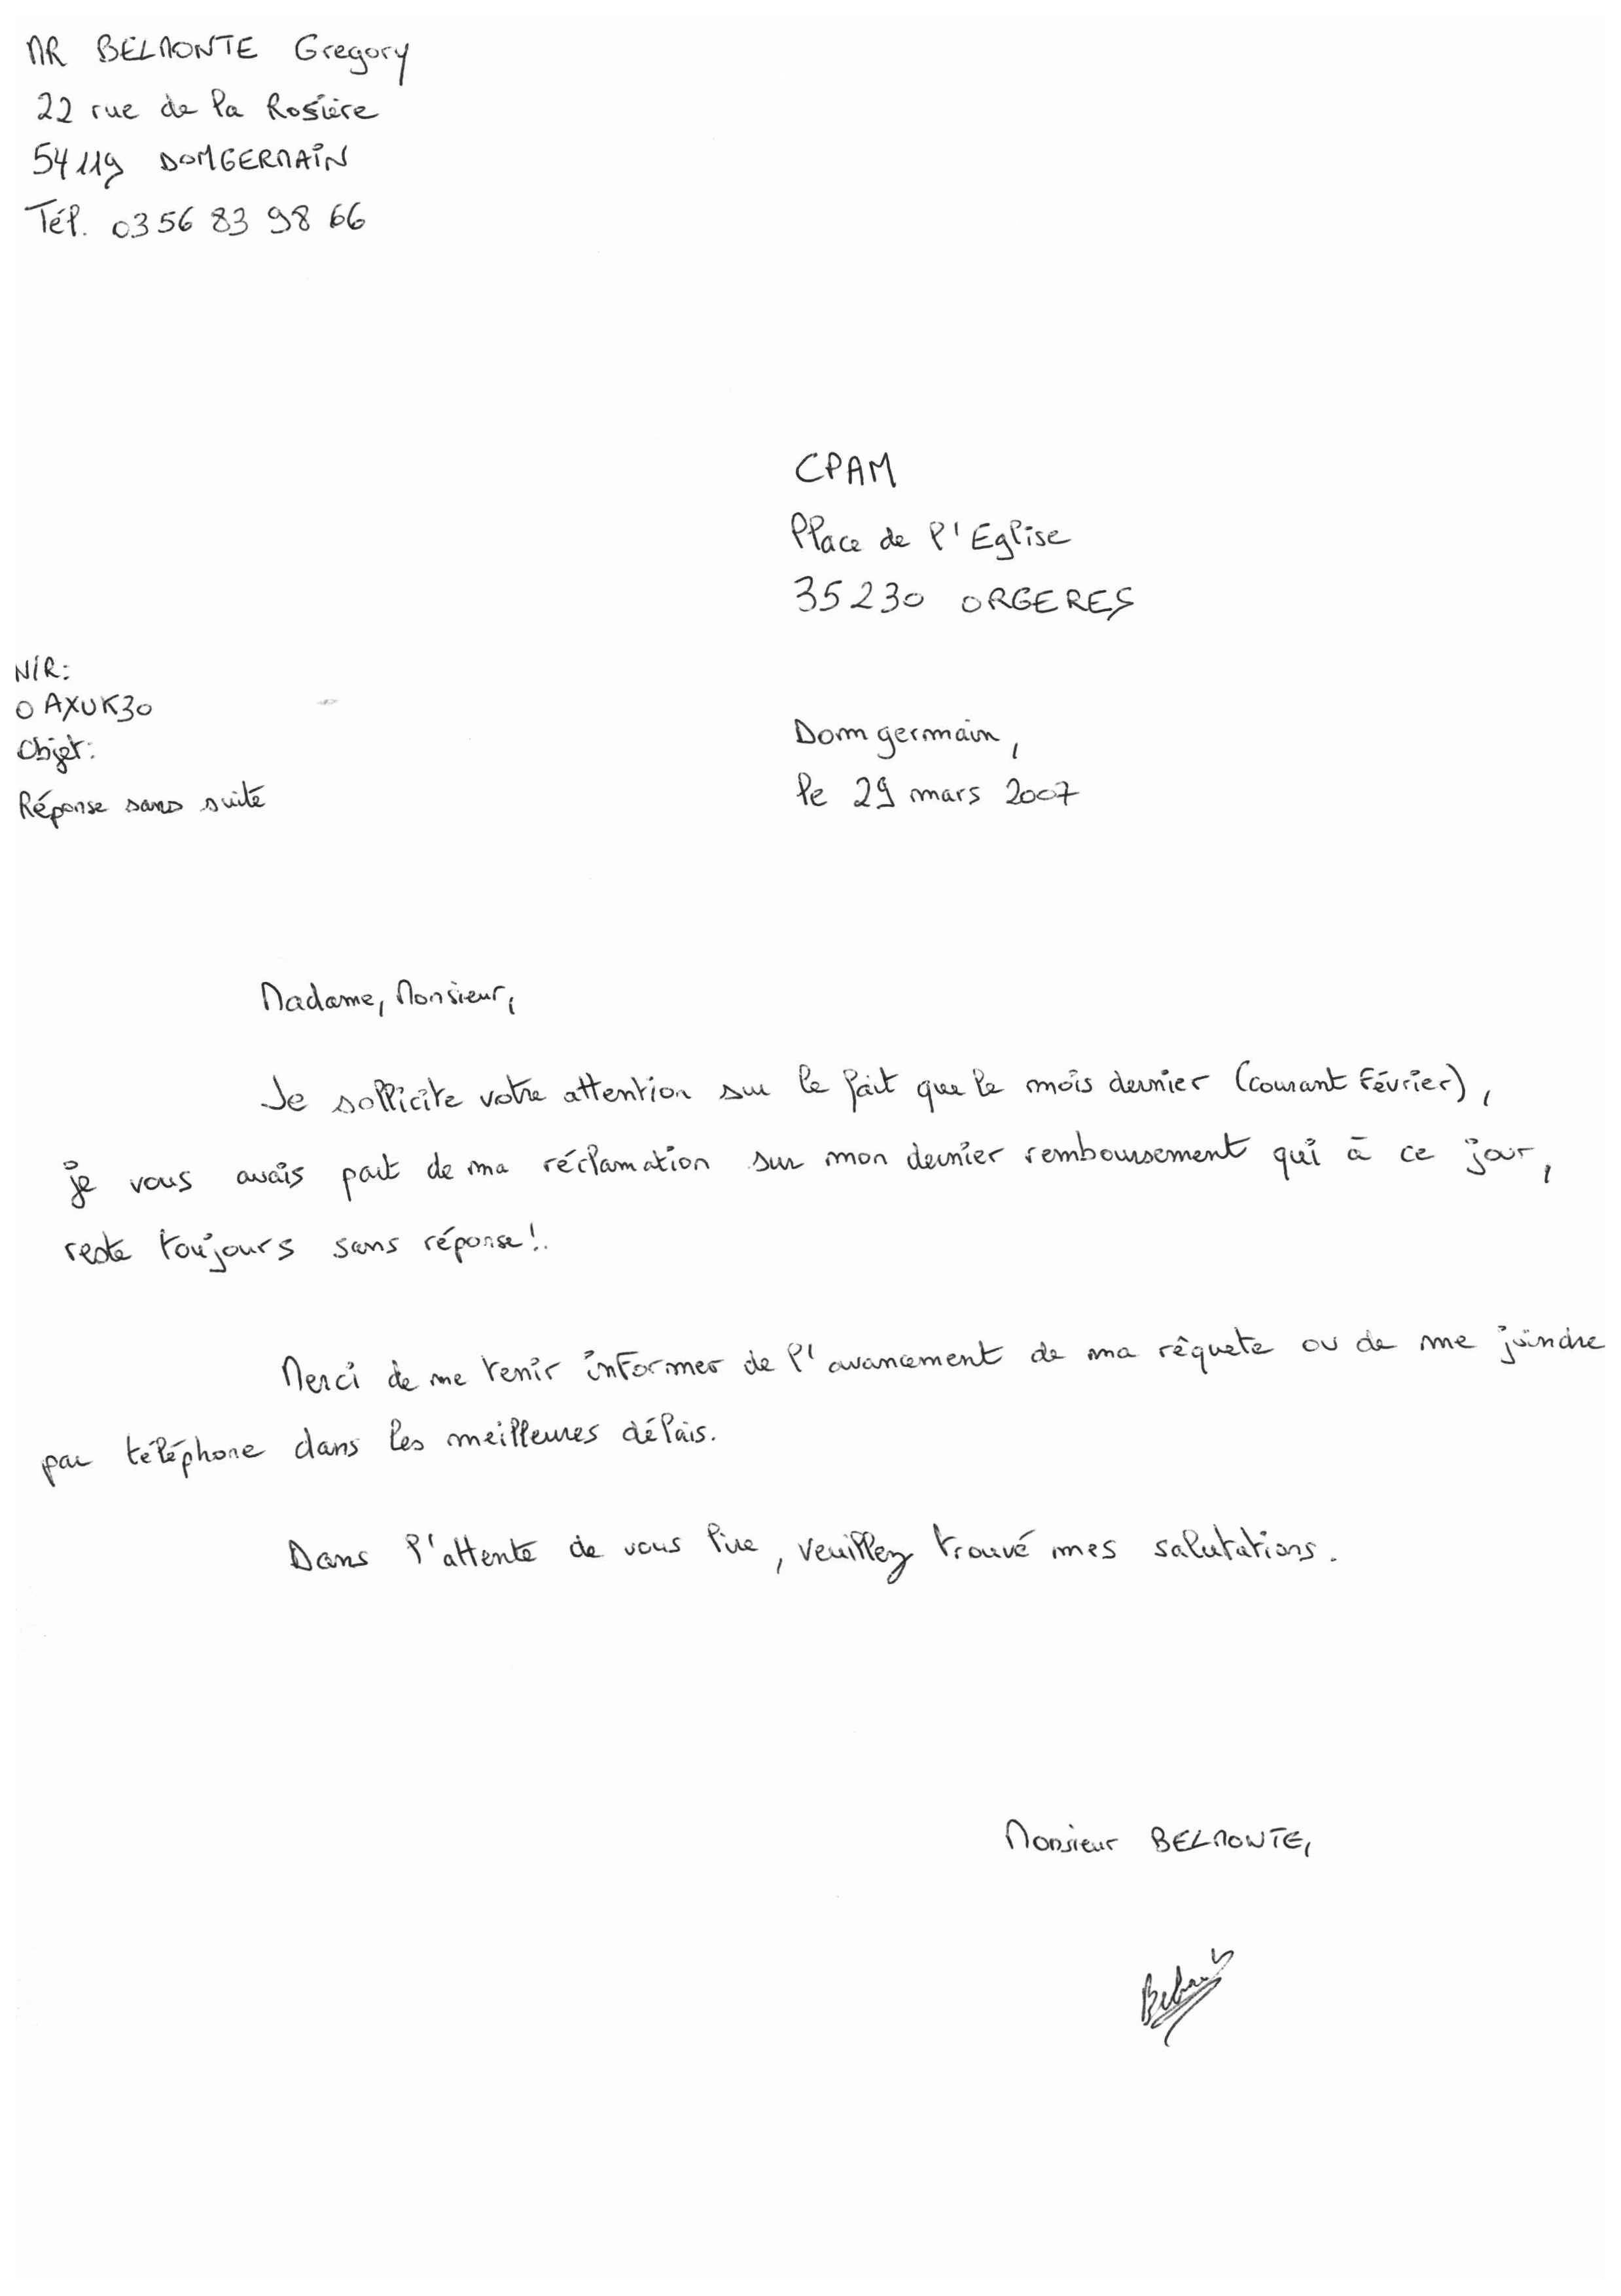 MR BELMONTE Gregory
22 rue de la Rosière
54119 DOMGERMAIN
Tél. 03 56 83 98 66
CPAM
Place de l'Eglise
35230 ORGERES
NIR:
0AXUK30
Objet:
Réponse sans suite
Domgermain,
le 29 mars 2007
Madame, Monsieur,
Je sollicite votre attention sur le fait que le mois dernier (courant Février),
je vous avais part de ma réclamation sur mon dernier remboursement qui à ce jour,
reste toujours sans réponse!.
Merci de me tenir informer de l'avancement de ma rêquete ou de me joindre
par téléphone dans les meilleures délais.
Dans l'attente de vous lire, veuillez trouvé mes salutations.
Monsieur BELMONTE,